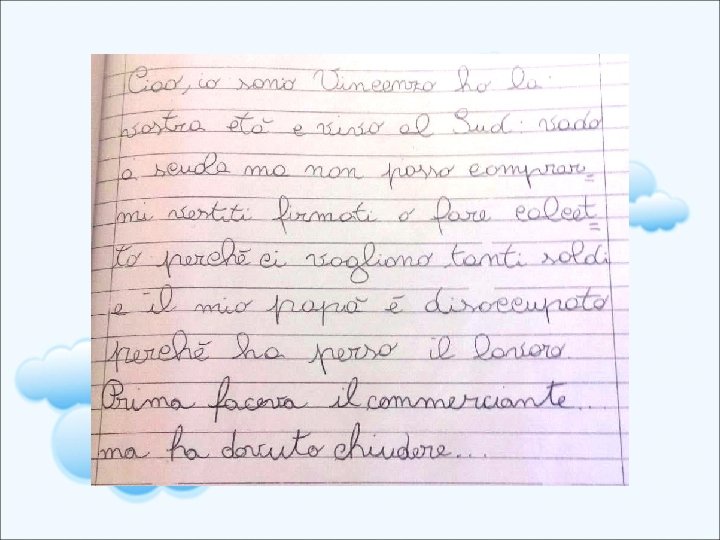 Ciao, io sono Vincenzo ho la
vostra età e vivo al Sud: vado
a scuola ma non posso comprar=
mi vestiti firmati o fare calcet=
to perché ci vogliono tanti soldi
e il mio papà è disoccupato
perché ha perso il lavoro.
Prima faceva il commerciante...
ma ha dovuto chiudere...